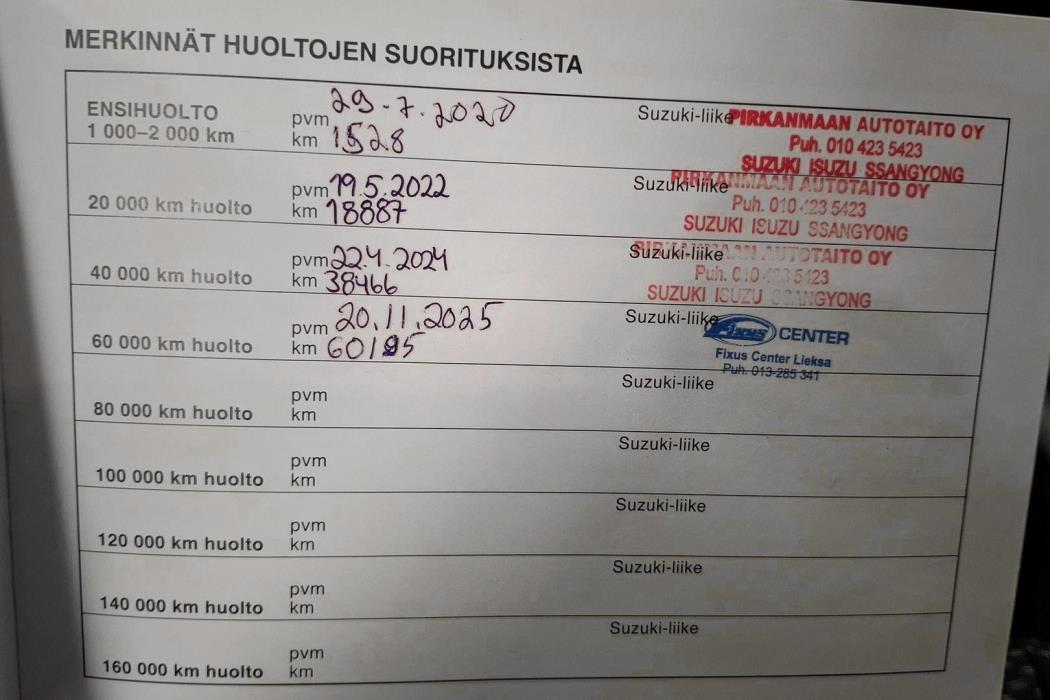 MERKINNÄT HUOLTOJEN SUORITUKSISTA
ENSIHUOLTO
1 000–2 000 km
pvm 29-7.2020
km 1528
Suzuki-liike PIRKANMAAN AUTOTAITO OY
Puh. 010 423 5423
SUZUKI ISUZU SSANGYONG
20 000 km huolto
pvm 19.5.2022
km 18887
Suzuki-liike PIRKANMAAN AUTOTAITO OY
Puh. 010 423 5423
SUZUKI ISUZU SSANGYONG
40 000 km huolto
pvm 22.4.2024
km 38466
Suzuki-liike PIRKANMAAN AUTOTAITO OY
Puh. 010 423 5423
SUZUKI ISUZU SSANGYONG
60 000 km huolto
pvm 20.11.2025
km 60195
Suzuki-liike Fixus CENTER
Fixus Center Lieksa
Puh. 013-285 341
80 000 km huolto
pvm
km
Suzuki-liike
100 000 km huolto
pvm
km
Suzuki-liike
120 000 km huolto
pvm
km
Suzuki-liike
140 000 km huolto
pvm
km
Suzuki-liike
160 000 km huolto
pvm
km
Suzuki-liike